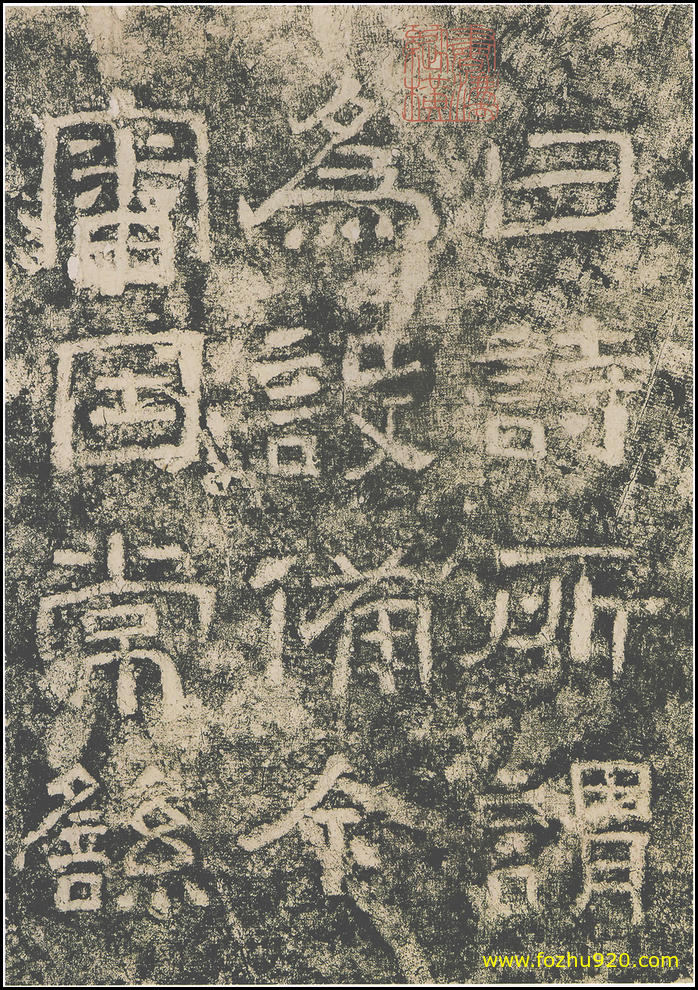 曰詩所謂
為設備今
審因常繇
www.fozhu920.com